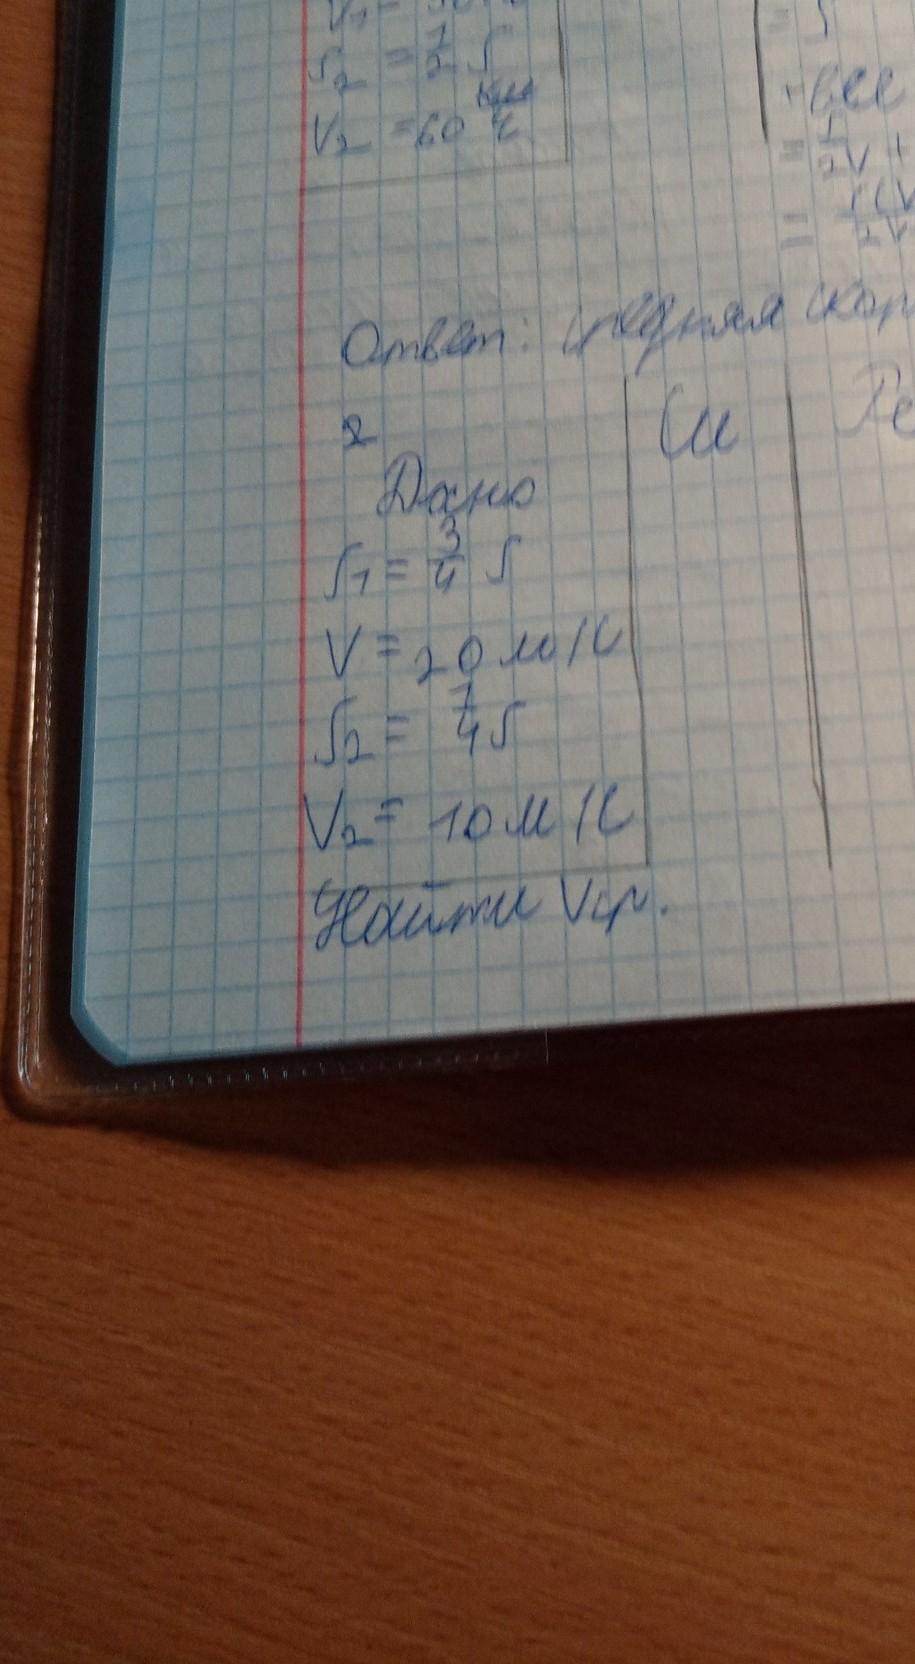 S₂ = 1/2 S
V₂ = 60 км/ч
= S
все
Ответ: средняя скор
2
Дано
Си
Ре
S₁ = 3/4 S
V = 20 м/с
S₂ = 1/4 S
V₂ = 10 м/с
Найти Vср.